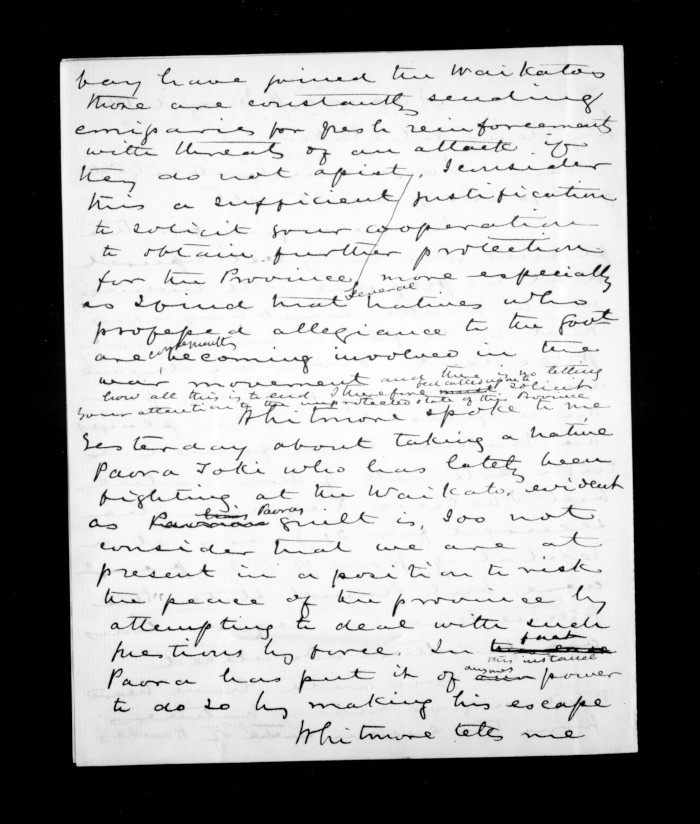 bay have joined the Waikatos
these are constantly sending
emissaries for fresh reinforcements
with threats of an attack if
they do not assist, I consider
this a sufficient justification
to solicit your cooperation
to obtain further protection
for the Province, more especially
as I find that several natives who
professed allegiance to the Govt
are constantly becoming involved in the
war movement and there is no telling
how all this is to end, I therefore feel called upon to solicit
your attention to the unprotected state of this Province
Whitmore spoke to me
Yesterday about taking a native
Paora Toki who has lately been
fighting at the Waikato, evident
as his Paoras guilt is, I do not
consider that we are at
present in a position to risk
the peace of the province by
attempting to deal with such
questions by force. In fact
this instance
Paora has put it of anyones power
to do so by making his escape
Whitmore tells me